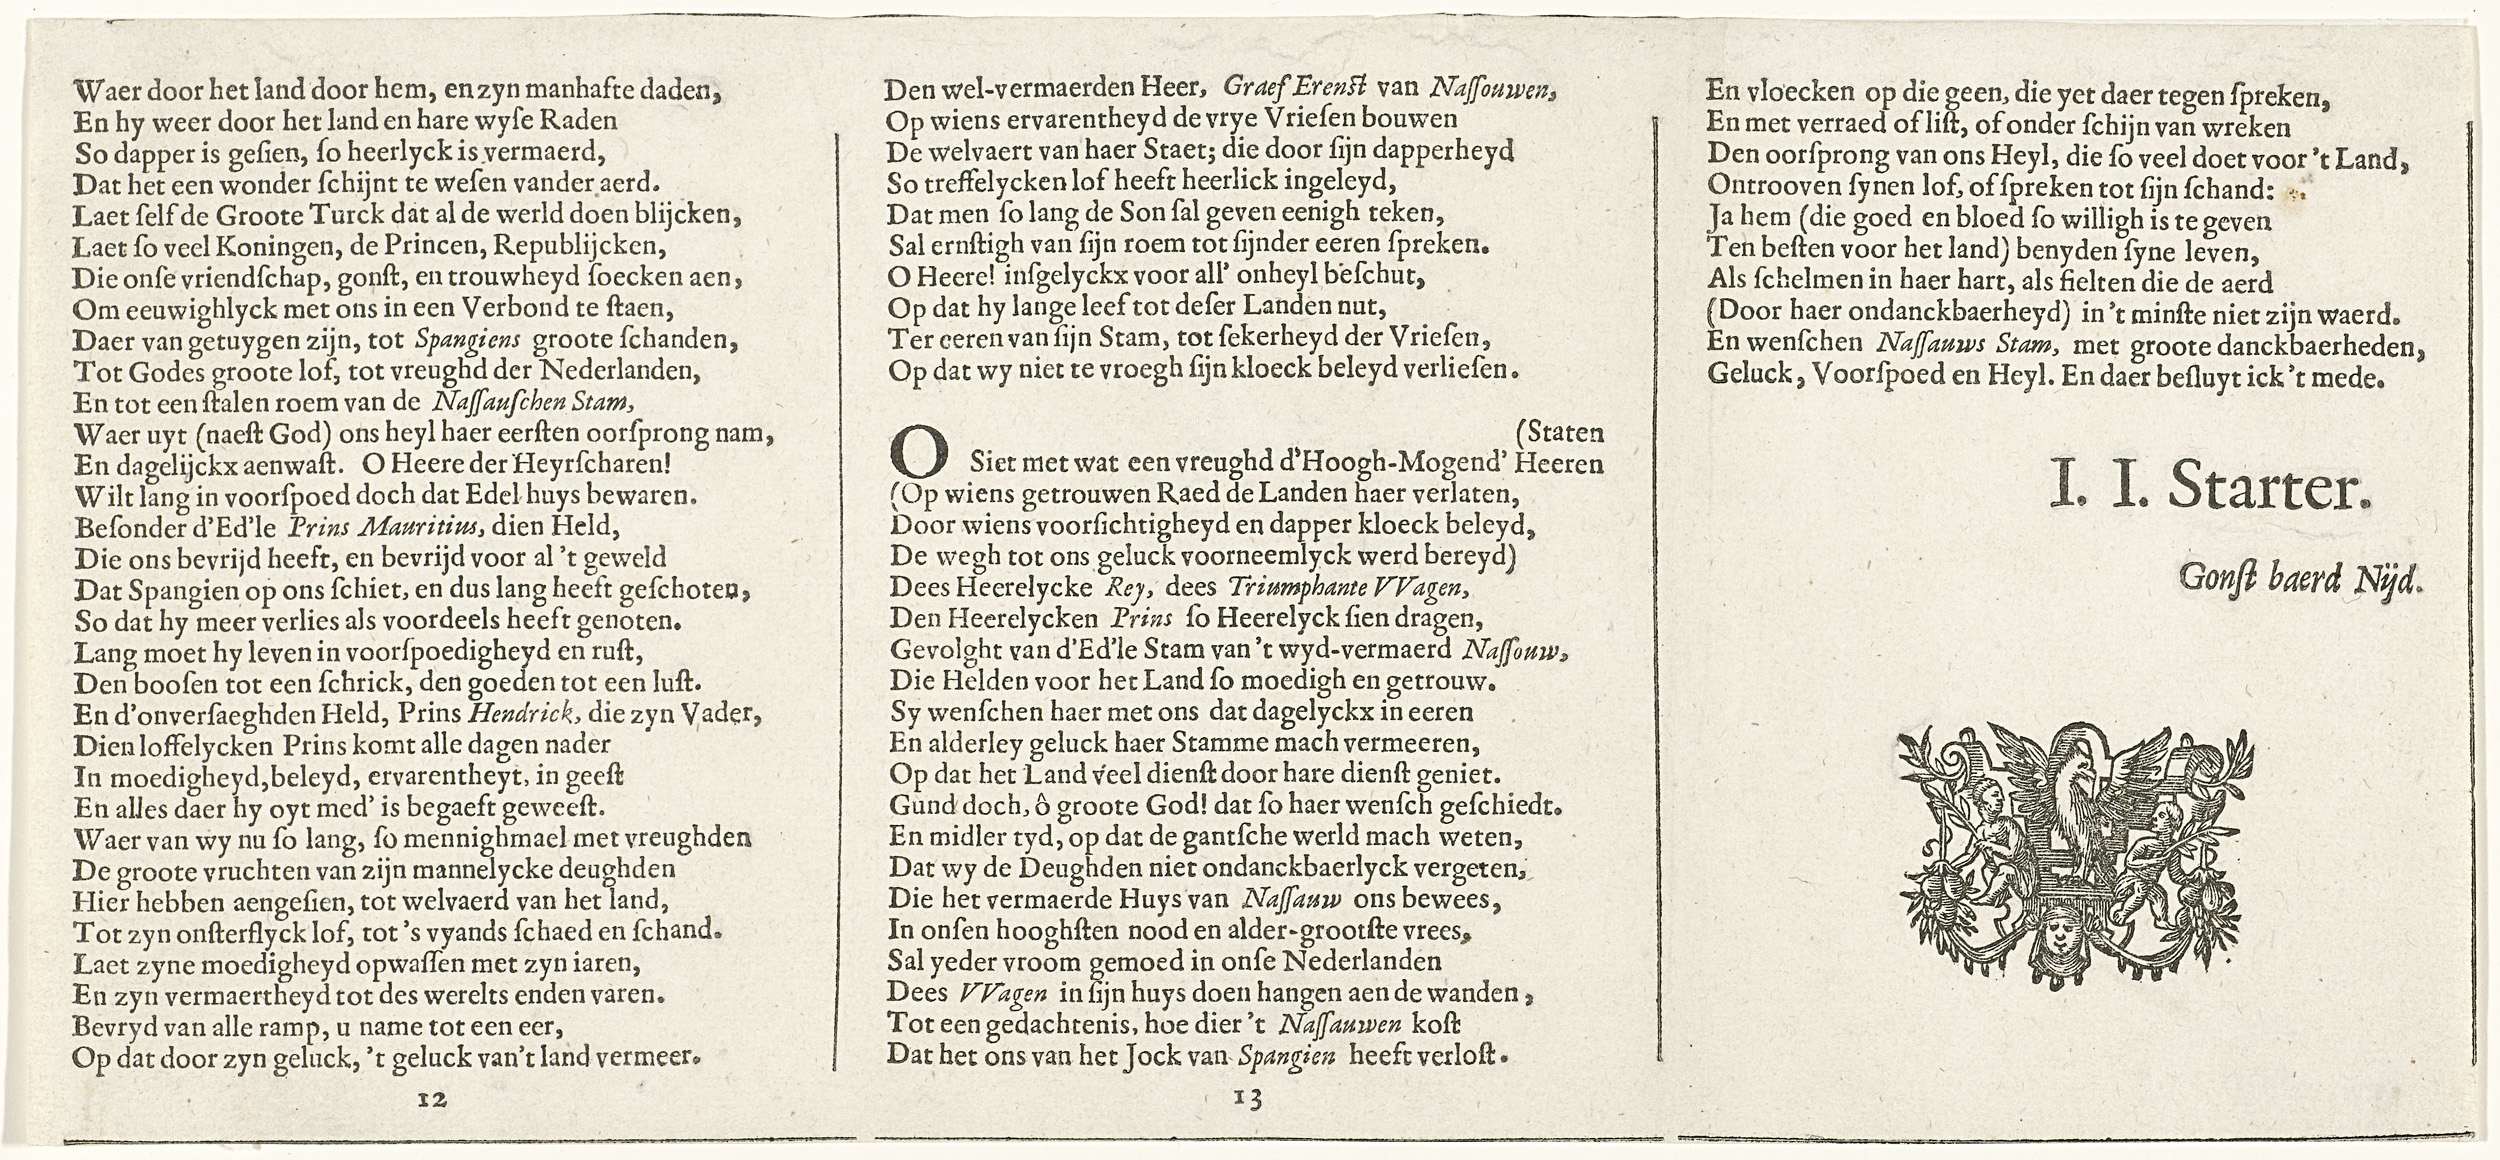 Waer door het land door hem, en zyn manhafte daden,
En hy weer door het land en hare wyſe Raden
So dapper is geſien, ſo heerlyck is vermaerd,
Dat het een wonder ſchijnt te weſen vander aerd.
Laet ſelf de Groote Turck dat al de werld doen blijcken,
Laet ſo veel Koningen, de Princen, Republijcken,
Die onſe vriendſchap, gonſt, en trouwheyd ſoecken aen,
Om eeuwighlyck met ons in een Verbond te ſtaen,
Daer van getuygen zijn, tot Spangiens groote ſchanden,
Tot Godes groote lof, tot vreughd der Nederlanden,
En tot een ſtalen roem van de Naſſauſchen Stam,
Waer uyt (naeſt God) ons heyl haer eerſten oorſprong nam,
En dagelijckx aenwaſt. O Heere der Heyrſcharen!
Wilt lang in voorſpoed doch dat Edel huys bewaren.
Beſonder d'Ed'le Prins Mauritius, dien Held,
Die ons bevrijd heeft, en bevrijd voor al 't geweld
Dat Spangien op ons ſchiet, en dus lang heeft geſchoten,
So dat hy meer verlies als voordeels heeft genoten.
Lang moet hy leven in voorſpoedigheyd en ruſt,
Den booſen tot een ſchrick, den goeden tot een luſt.
En d'onverſaeghden Held, Prins Hendrick, die zyn Vader,
Dien loffelycken Prins komt alle dagen nader
In moedigheyd, beleyd, ervarentheyt, in geeſt
En alles daer hy oyt med' is begaeft geweeſt.
Waer van wy nu ſo lang, ſo mennighmael met vreughden
De groote vruchten van zijn mannelycke deughden
Hier hebben aengeſien, tot welvaerd van het land,
Tot zyn onſterflyck lof, tot 's vyands ſchaed en ſchand.
Laet zyne moedigheyd opwaſſen met zyn iaren,
En zyn vermaertheyd tot des werelts enden varen.
Bevryd van alle ramp, u name tot een eer,
Op dat door zyn geluck, 't geluck van't land vermeer.
12
Den wel-vermaerden Heer, Graef Erenſt van Naſſouwen,
Op wiens ervarentheyd de vrye Vrieſen bouwen
De welvaert van haer Staet; die door ſijn dapperheyd
So treffelycken lof heeft heerlick ingeleyd,
Dat men ſo lang de Son ſal geven eenigh teken,
Sal ernſtigh van ſijn roem tot ſijnder eeren ſpreken.
O Heere! inſgelyckx voor all' onheyl beſchut,
Op dat hy lange leef tot deſer Landen nut,
Ter eeren van ſijn Stam, tot ſekerheyd der Vrieſen,
Op dat wy niet te vroegh ſijn kloeck beleyd verlieſen.
(Staten
O Siet met wat een vreughd d'Hoogh-Mogend' Heeren
(Op wiens getrouwen Raed de Landen haer verlaten,
Door wiens voorſichtigheyd en dapper kloeck beleyd,
De wegh tot ons geluck voorneemlyck werd bereyd)
Dees Heerelycke Rey, dees Triumphante VVagen,
Den Heerelycken Prins ſo Heerelyck ſien dragen,
Gevolght van d'Ed'le Stam van 't wyd-vermaerd Naſſouw,
Die Helden voor het Land ſo moedigh en getrouw.
Sy wenſchen haer met ons dat dagelyckx in eeren
En alderley geluck haer Stamme mach vermeeren,
Op dat het Land veel dienſt door hare dienſt geniet.
Gund doch, ô groote God! dat ſo haer wenſch geſchiedt.
En midler tyd, op dat de gantſche werld mach weten,
Dat wy de Deughden niet ondanckbaerlyck vergeten,
Die het vermaerde Huys van Naſſauw ons bewees,
In onſen hooghſten nood en alder-grootſte vrees,
Sal yeder vroom gemoed in onſe Nederlanden
Dees VVagen in ſijn huys doen hangen aen de wanden,
Tot een gedachtenis, hoe dier 't Naſſauwen koſt
Dat het ons van het Jock van Spangien heeft verloſt.
13
En vloecken op die geen, die yet daer tegen ſpreken,
En met verraed of liſt, of onder ſchijn van wreken
Den oorſprong van ons Heyl, die ſo veel doet voor 't Land,
Ontrooven ſynen lof, of ſpreken tot ſijn ſchand:
Ja hem (die goed en bloed ſo willigh is te geven
Ten beſten voor het land) benyden ſyne leven,
Als ſchelmen in haer hart, als fielten die de aerd
(Door haer ondanckbaerheyd) in 't minſte niet zijn waerd.
En wenſchen Naſſauws Stam, met groote danckbaerheden,
Geluck, Voorſpoed en Heyl. En daer beſluyt ick 't mede.
I. I. Starter.
Gonſt baerd Nijd.